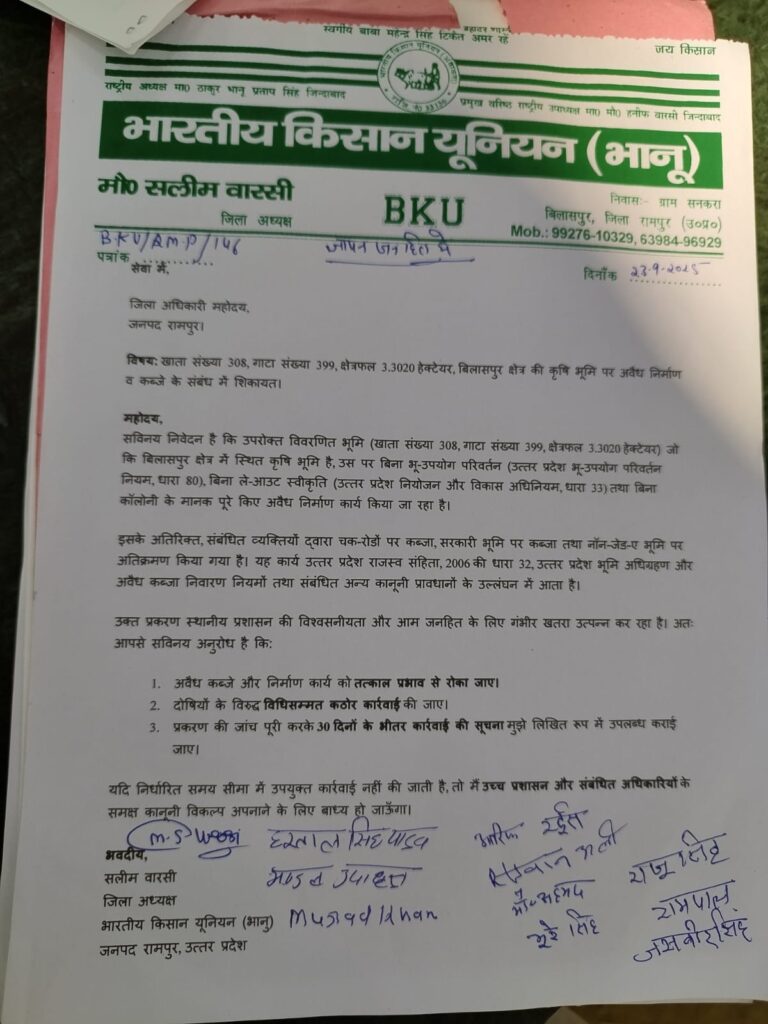 स्वर्गीय बाबा महेन्द्र सिंह टिकैत अमर रहे
जय किसान
राष्ट्रीय अध्यक्ष मा0 ठाकुर भानु प्रताप सिंह जिन्दाबाद
प्रमुख वरिष्ठ राष्ट्रीय उपाध्यक्ष मा0 मौ0 हनीफ वारसी जिन्दाबाद
भारतीय किसान यूनियन (भानु)
मौ0 सलीम वारसी
जिला अध्यक्ष
BKU
निवास:- ग्राम सनकरा
बिलासपुर, जिला रामपुर (उ०प्र०)
Mob.: 99276-10329, 63984-96929
पत्रांक BKU/RMP/146
ज्ञापन जनहित में
दिनाँक 23-9-2025
सेवा में,
जिला अधिकारी महोदय,
जनपद रामपुर।
विषय: खाता संख्या 308, गाटा संख्या 399, क्षेत्रफल 3.3020 हेक्टेयर, बिलासपुर क्षेत्र की कृषि भूमि पर अवैध निर्माण
व कब्जे के संबंध में शिकायत।
महोदय,
सविनय निवेदन है कि उपरोक्त विवरणित भूमि (खाता संख्या 308, गाटा संख्या 399, क्षेत्रफल 3.3020 हेक्टेयर) जो
कि बिलासपुर क्षेत्र में स्थित कृषि भूमि है, उस पर बिना भू-उपयोग परिवर्तन (उत्तर प्रदेश भू-उपयोग परिवर्तन
नियम, धारा 80), बिना ले-आउट स्वीकृति (उत्तर प्रदेश नियोजन और विकास अधिनियम, धारा 33) तथा बिना
कॉलोनी के मानक पूरे किए अवैध निर्माण कार्य किया जा रहा है।
इसके अतिरिक्त, संबंधित व्यक्तियों द्वारा चक-रोडों पर कब्जा, सरकारी भूमि पर कब्जा तथा नॉन-जेड-ए भूमि पर
अतिक्रमण किया गया है। यह कार्य उत्तर प्रदेश राजस्व संहिता, 2006 की धारा 32, उत्तर प्रदेश भूमि अधिग्रहण और
अवैध कब्जा निवारण नियमों तथा संबंधित अन्य कानूनी प्रावधानों के उल्लंघन में आता है।
उक्त प्रकरण स्थानीय प्रशासन की विश्वसनीयता और आम जनहित के लिए गंभीर खतरा उत्पन्न कर रहा है। अतः
आपसे सविनय अनुरोध है कि:
1. अवैध कब्जे और निर्माण कार्य को तत्काल प्रभाव से रोका जाए।
2. दोषियों के विरुद्ध विधिसम्मत कठोर कार्रवाई की जाए।
3. प्रकरण की जांच पूरी करके 30 दिनों के भीतर कार्रवाई की सूचना मुझे लिखित रूप में उपलब्ध कराई
जाए।
यदि निर्धारित समय सीमा में उपयुक्त कार्रवाई नहीं की जाती है, तो मैं उच्च प्रशासन और संबंधित अधिकारियों के
समक्ष कानूनी विकल्प अपनाने के लिए बाध्य हो जाऊँगा।
भवदीय,
सलीम वारसी
जिला अध्यक्ष
भारतीय किसान यूनियन (भानु)
जनपद रामपुर, उत्तर प्रदेश
राजू सिंह
रामपाल
जसवीर सिंह